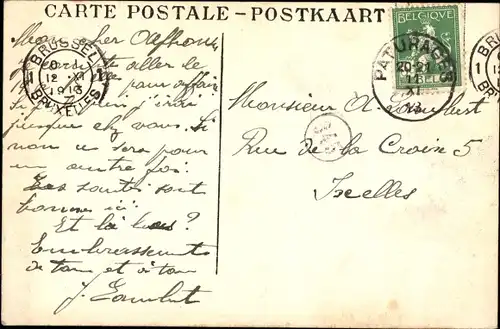 CARTE POSTALE - POSTKAART
BELGIQUE
BRUSSEL
1 12 XI 1
1913
BRUXELLES
PATURAGES
20-21
11
XI
13
Mon cher Alphonse
aller le
pour affaire
Si j'irai
jusque chez vous. Si
non ce sera pour
un autre foi.
Les santés sont
bonnes ici
Et là bas?
Embrassements
de tous et à tous
J.
Monsieur A
Rue de la Croix 5
Ixelles